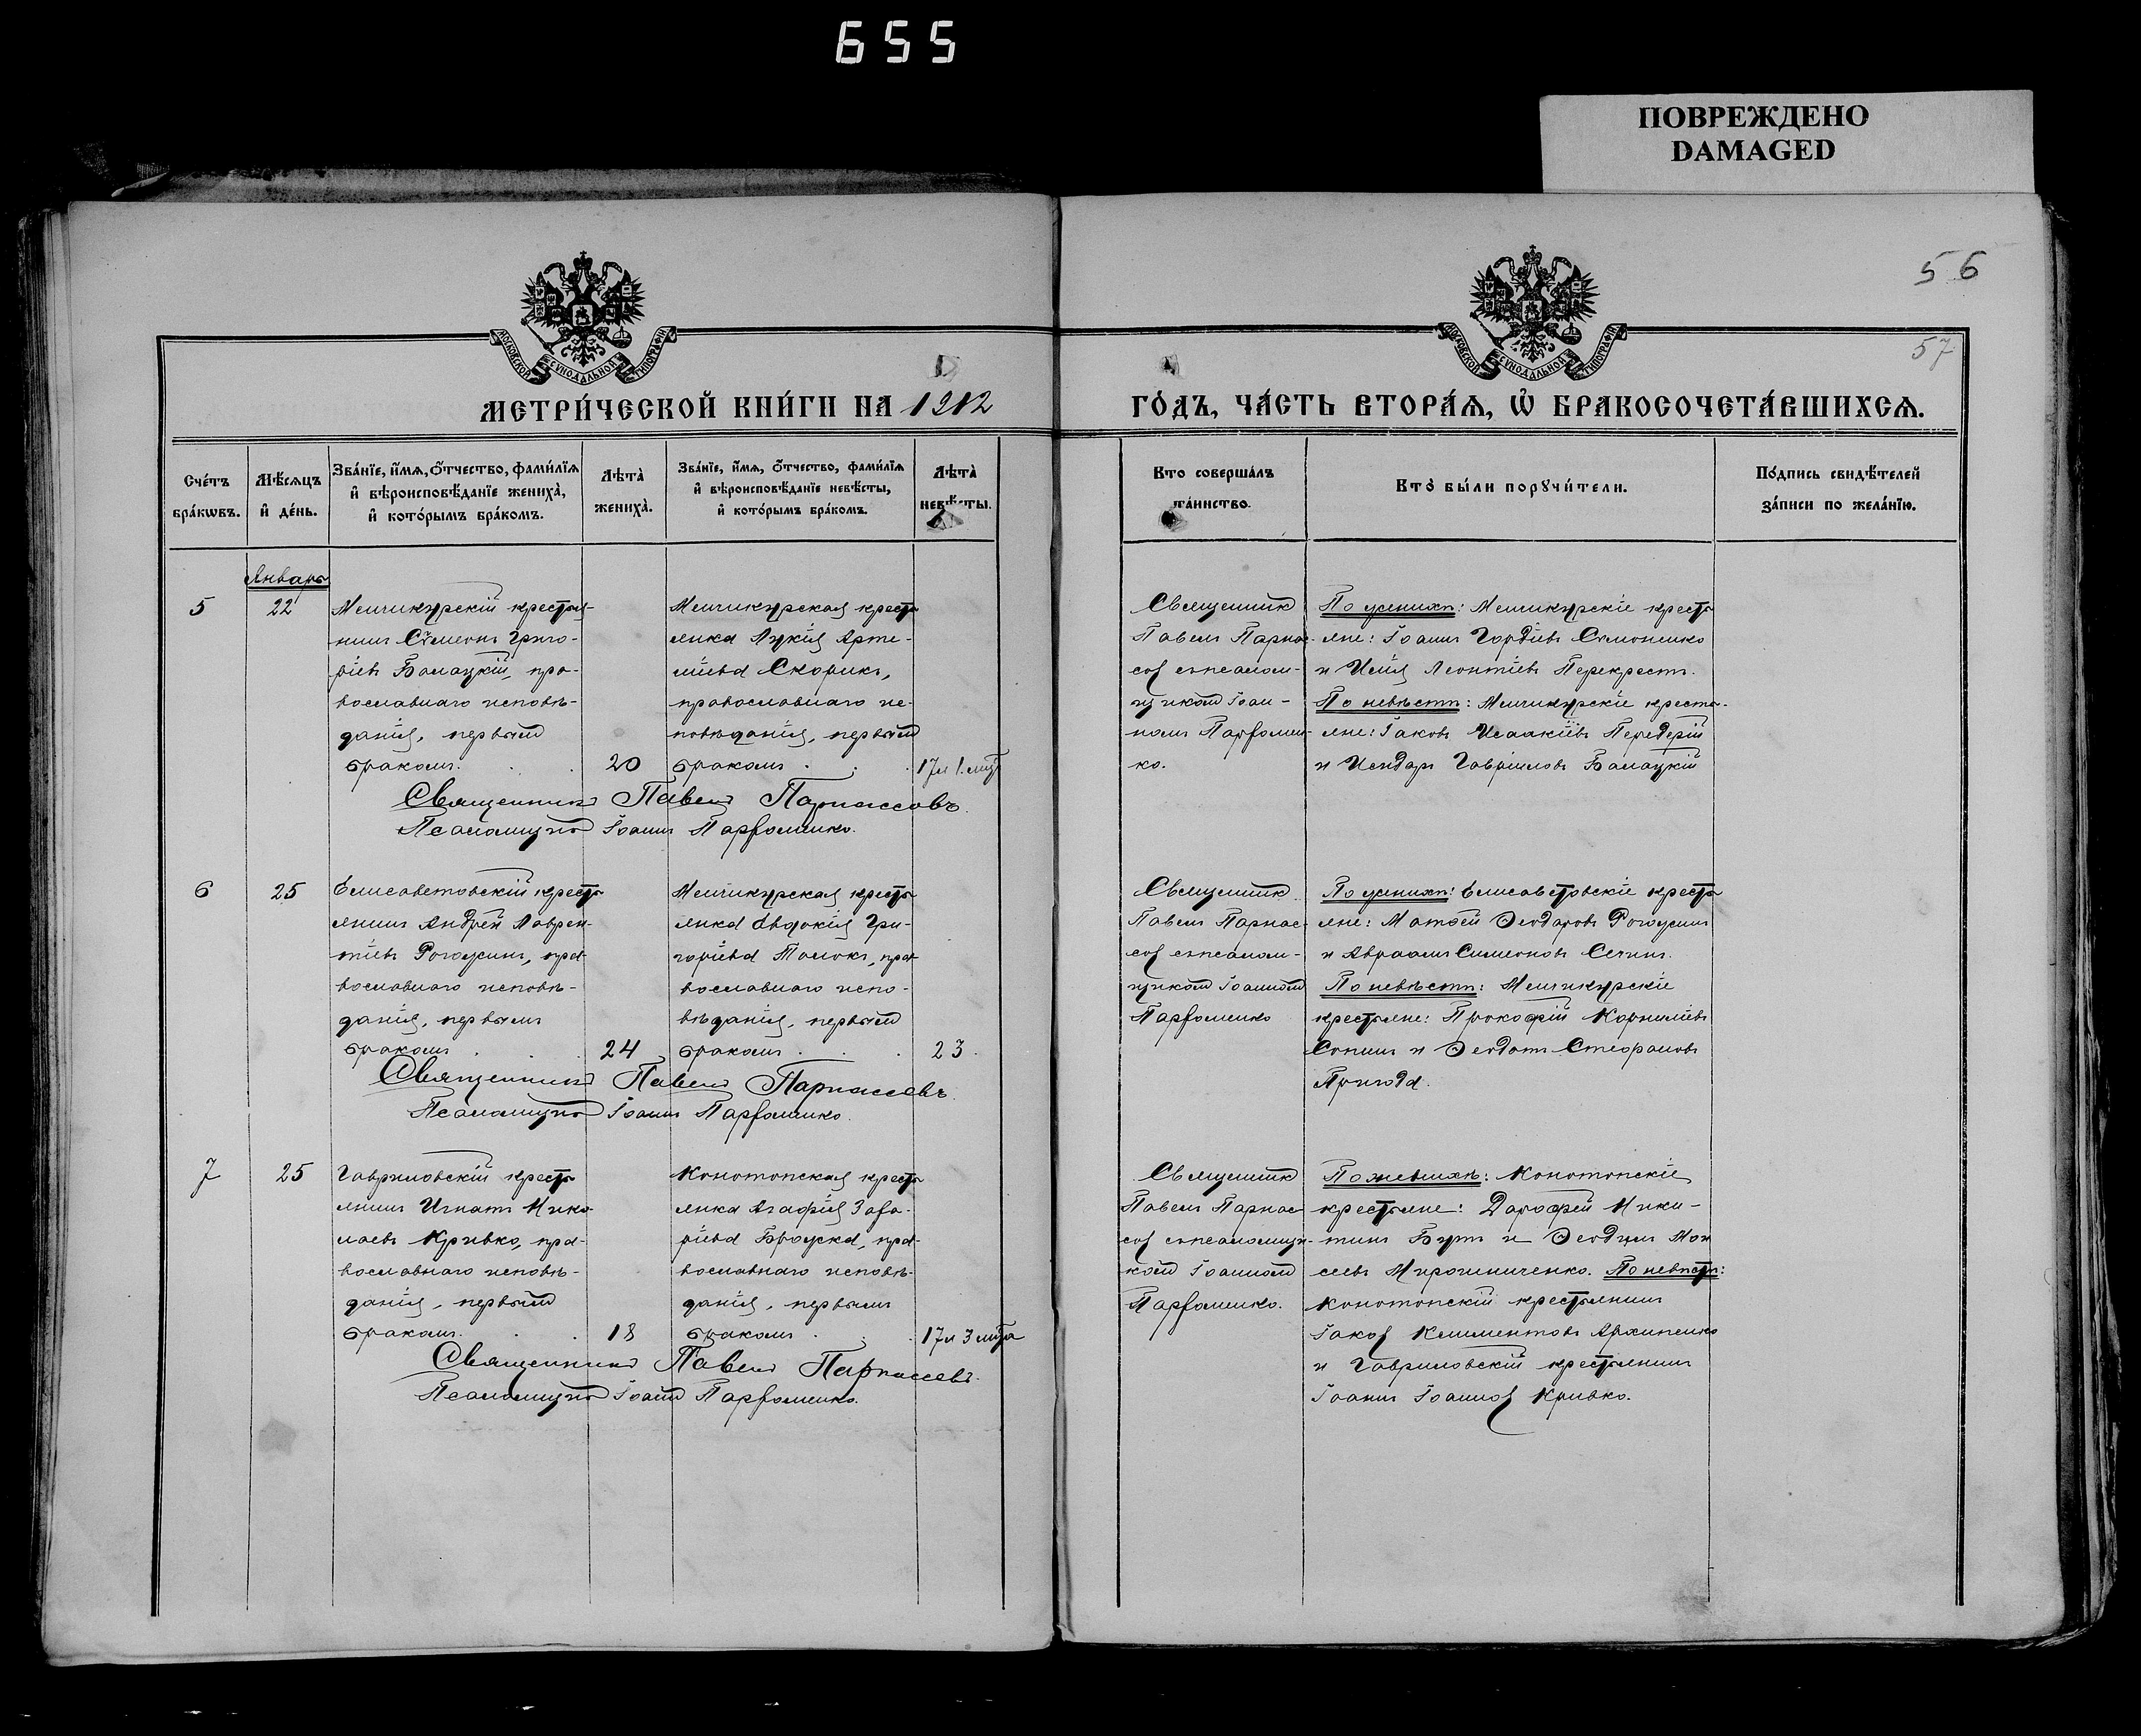 655
ПОВРЕЖДЕНО
DAMAGED
56
57
МОСКОВСКОЙ СѴНОДАЛЬНОЙ ТИПОГРАФІИ
МОСКОВСКОЙ СѴНОДАЛЬНОЙ ТИПОГРАФІИ
МЕТРИ́ЧЕСКОЙ КНИ́ГИ НА 1912
ГО́ДЪ, ЧА́СТЬ ВТОРА́Ѧ, Ѽ БРАКОСОЧЕТА́ВШИХСѦ.
Сче́тъ
бра́кѡвъ.
Мѣ́сѧцъ
и҆ де́нь.
Зва́нїе, и҆́мѧ, ѻ҆́тчество, фами́лїѧ
и҆ вѣроисповѣ́данїе жениха̀,
и҆ кото́рымъ бра́комъ.
Лѣ́та̀
жениха̀.
Зва́нїе, и҆́мѧ, ѻ҆́тчество, фами́лїѧ
и҆ вѣроисповѣ́данїе невѣ́сты,
и҆ кото́рымъ бра́комъ.
Лѣ́та̀
невѣ́сты.
Кто соверша́лъ
та́инство.
Кто̀ бы́ли порꙋчи́тели.
По́дпись свидѣ́телей
за́писи по жела́нїю.
Январь
5
22
Менчикурскій крестья-
нинъ Сѵмеонъ Григо-
ріевъ Балацкій, пра-
вославнаго исповѣ-
данія, первымъ
бракомъ.
20
Менчикурская кресть
янка Лукія Арте-
міева Скорикъ,
православнаго ис-
повѣданія, первымъ
бракомъ
17 л 1. мц.
Священникъ
Павелъ Парнас-
совъ съ псалом-
щикомъ Іоан-
номъ Парфомен-
ко.
По женихѣ: Менчикурскіе кресть
яне: Іоаннъ Гордіевъ Сѵмоненко
и Илія Леонтіевъ Перекрестъ.
По невѣстѣ: Менчикурскіе крестья-
яне: Іаковъ Исаакіевъ Передерій
и Исидоръ Гавріиловъ Балацкій
Священникъ Павелъ Парнассовъ.
Псаломщикъ Іоаннъ Парфоменко.
6
25
Елисаветовскій кресть
янинъ Андрей Лаврен-
тіевъ Рогожинъ, пра-
вославнаго исповѣ-
данія, первымъ
бракомъ
24
Менчикурская кресть
янка Евдокія Гри-
горіева Толокъ, пра-
вославнаго испо-
вѣданія, первымъ
бракомъ
23.
Священникъ
Павелъ Парнас-
совъ съ псалом-
щикомъ Іоанномъ
Парфоменко
По женихѣ: Елисаветовскіе кресть
яне: Матѳей Ѳеодоровъ Рогожинъ
и Авраамъ Симеоновъ Сечинъ.
По невѣстѣ: Менчикурскіе
крестьяне: Прокофій Корниліевъ
Сопинъ и Ѳеодотъ Стефановъ
Пригода.
Священникъ Павелъ Парнассовъ.
Псаломщикъ Іоаннъ Парфоменко.
7
25
Гавриловскій кресть
янинъ Игнатъ Нико-
лаевъ Кривко, пра-
вославнаго исповѣ-
данія, первымъ
бракомъ.
18
Конотопская кресть
янка Агафія Заха-
ріева Бражка, пра-
вославнаго исповѣ-
данія, первымъ
бракомъ
17 л 3 м-ца
Священникъ
Павелъ Парнас-
совъ съ псаломщи-
комъ Іоанномъ
Парфоменко.
По женихѣ: Конотопскіе
крестьяне: Дарофей Ники-
тинъ Бутъ и Ѳеодулъ Мои
сеевъ Мирошниченко. По невѣстѣ:
Конотопскій крестьянинъ
Іаковъ Климентовъ Архипенко
и Гавриловскій крестьянинъ
Іоаннъ Іоанновъ Кривко.
Священникъ Павелъ Парнассовъ.
Псаломщикъ Іоаннъ Парфоменко.